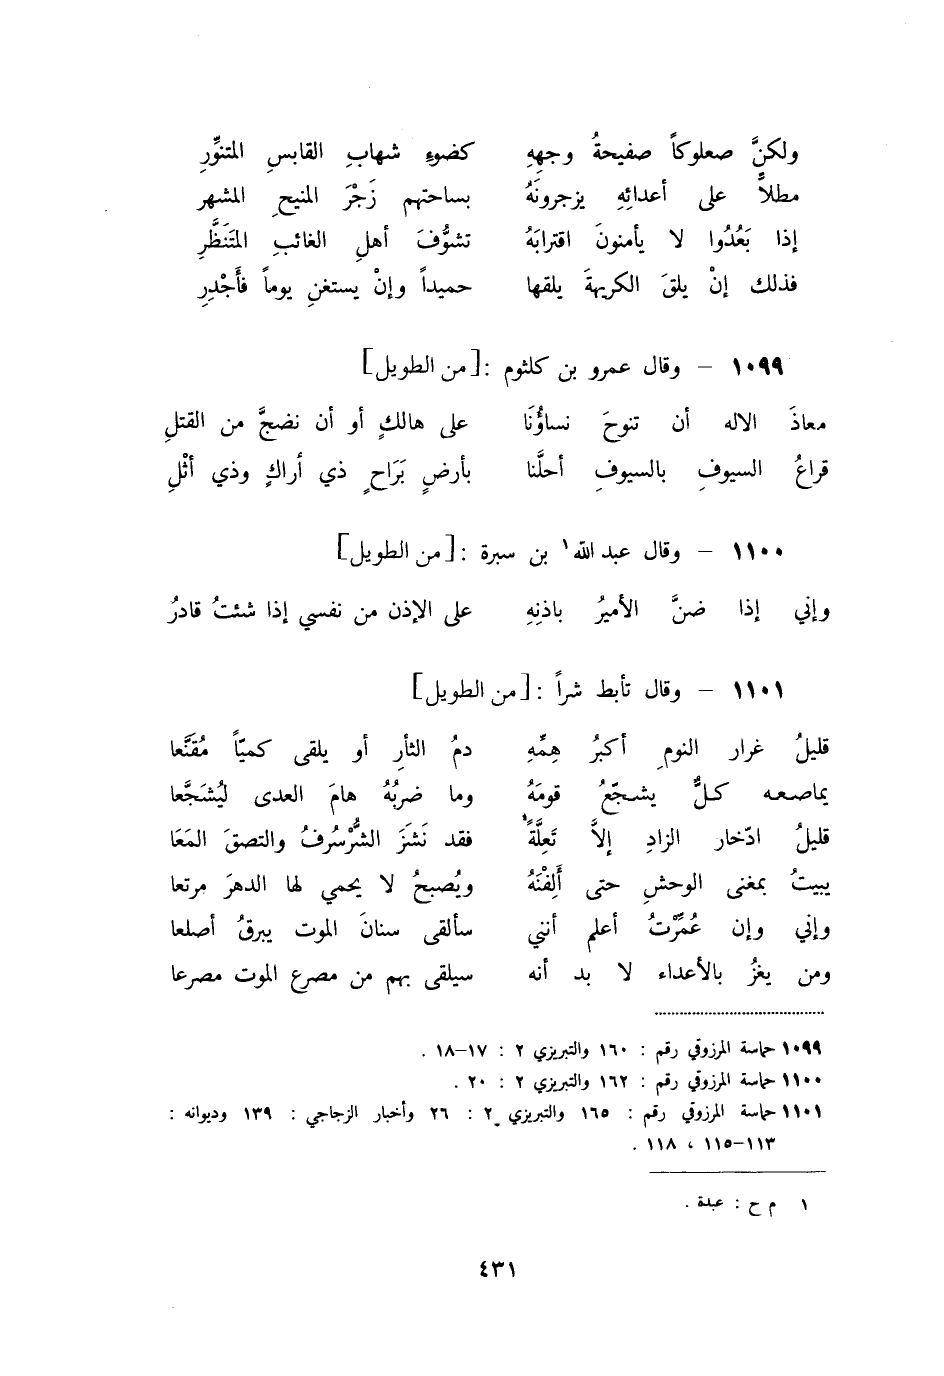 ولكنَّ صعلوكاً صفيحةُ وجههِ كضوءِ شهابِ القابسِ المتنوِّرِ
مطلاًّ على أعدائِهِ يزجرونَهُ بساحتهم زَجْرَ المنيحِ المشهر
إذا بَعُدُوا لا يأمنونَ اقترابَهُ تشوُّفَ أهلِ الغائبِ المتَنَظَّرِ
فذلك إنْ يلقَ الكريهةَ يلقها حميداً وإنْ يستغنِ يوماً فأَجْدِرِ
١٠٩٩ – وقال عمرو بن كلثوم : [ من الطويل ]
معاذَ الاله أن تنوحَ نساؤُنَا على هالكٍ أو أن نضجَّ من القتلِ
قراعُ السيوفِ بالسيوفِ أحلَّنا بأرضٍ بَرَاحٍ ذي أراكٍ وذي أثْلِ
١١٠٠ – وقال عبد الله١ بن سبرة : [ من الطويل ]
وإني إذا ضنَّ الأميرُ باذنِهِ على الإذن من نفسي إذا شئتُ قادرُ
١١٠١ – وقال تأبط شراً : [ من الطويل ]
قليلُ غرار النومِ أكبرُ هِمِّهِ دمُ الثأرِ أو يلقى كميّاً مُقَنَّعا
يماصعه كلٌّ يشجّعُ قومَهُ وما ضربُهُ هامَ العدى ليُشَجَّعا
قليلُ ادّخار الزادِ إلاَّ تَعِلَّةً فقد نَشَزَ الشُّرْسُرفُ والتصقَ المَعَا
يبيتُ بمغنى الوحشِ حتى أَلِفْنَهُ ويُصبحُ لا يحمي لها الدهرَ مرتعا
وإني وإن عُمِّرْتُ أعلم أنني سألقى سنانَ الموت يبرقُ أصلعا
ومن يغزُ بالأعداء لا بد أنه سيلقى بهم من مصرع الموت مصرعا
١٠٩٩ حماسة المرزوقي رقم : ١٦٠ والتبريزي ٢ : ١٧–١٨ .
١١٠٠ حماسة المرزوقي رقم : ١٦٢ والتبريزي ٢ : ٢٠ .
١١٠١ حماسة المرزوقي رقم : ١٦٥ والتبريزي ٢ : ٢٦ وأخبار الزجاجي : ١٣٩ وديوانه :
١١٣–١١٥ ، ١١٨ .
١ م ح : عبدة .
٤٣١